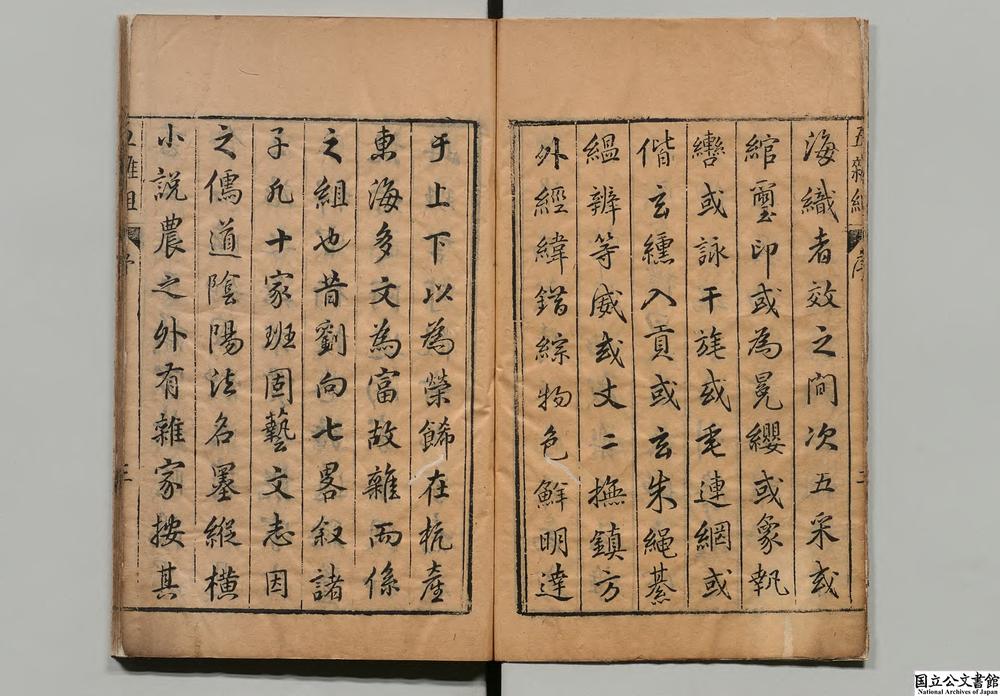 五雜組 序 二
海織者效之間次五采或
綰璽印或為冕纓或象執
轡或詠干旄或垂連網或
偕玄纁入貢或玄朱繩綦
縕辨等威或丈二撫鎮方
外經緯錯綜物色鮮明達
于上下以為榮飾在杭產
東海多文為富故雜而係
之組也昔劉向七畧叙諸
子凡十家班固藝文志因
之儒道陰陽法名墨縱橫
小說農之外有雜家按其
五雜組 序 三
国立公文書館
National Archives of Japan